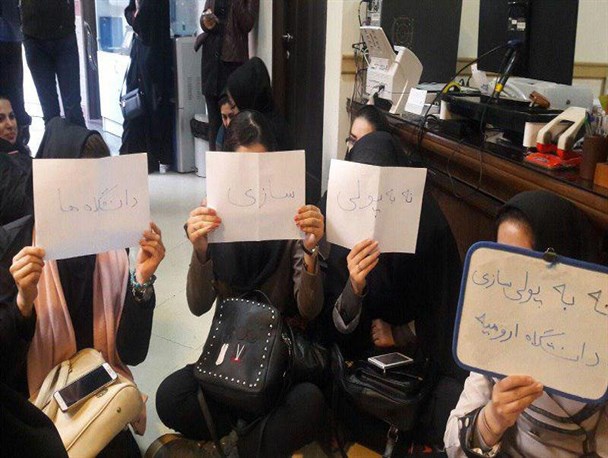 نه به پولی
سازی
دانشگاه ها
نه به پولی سازی
دانشگاه ارومیه